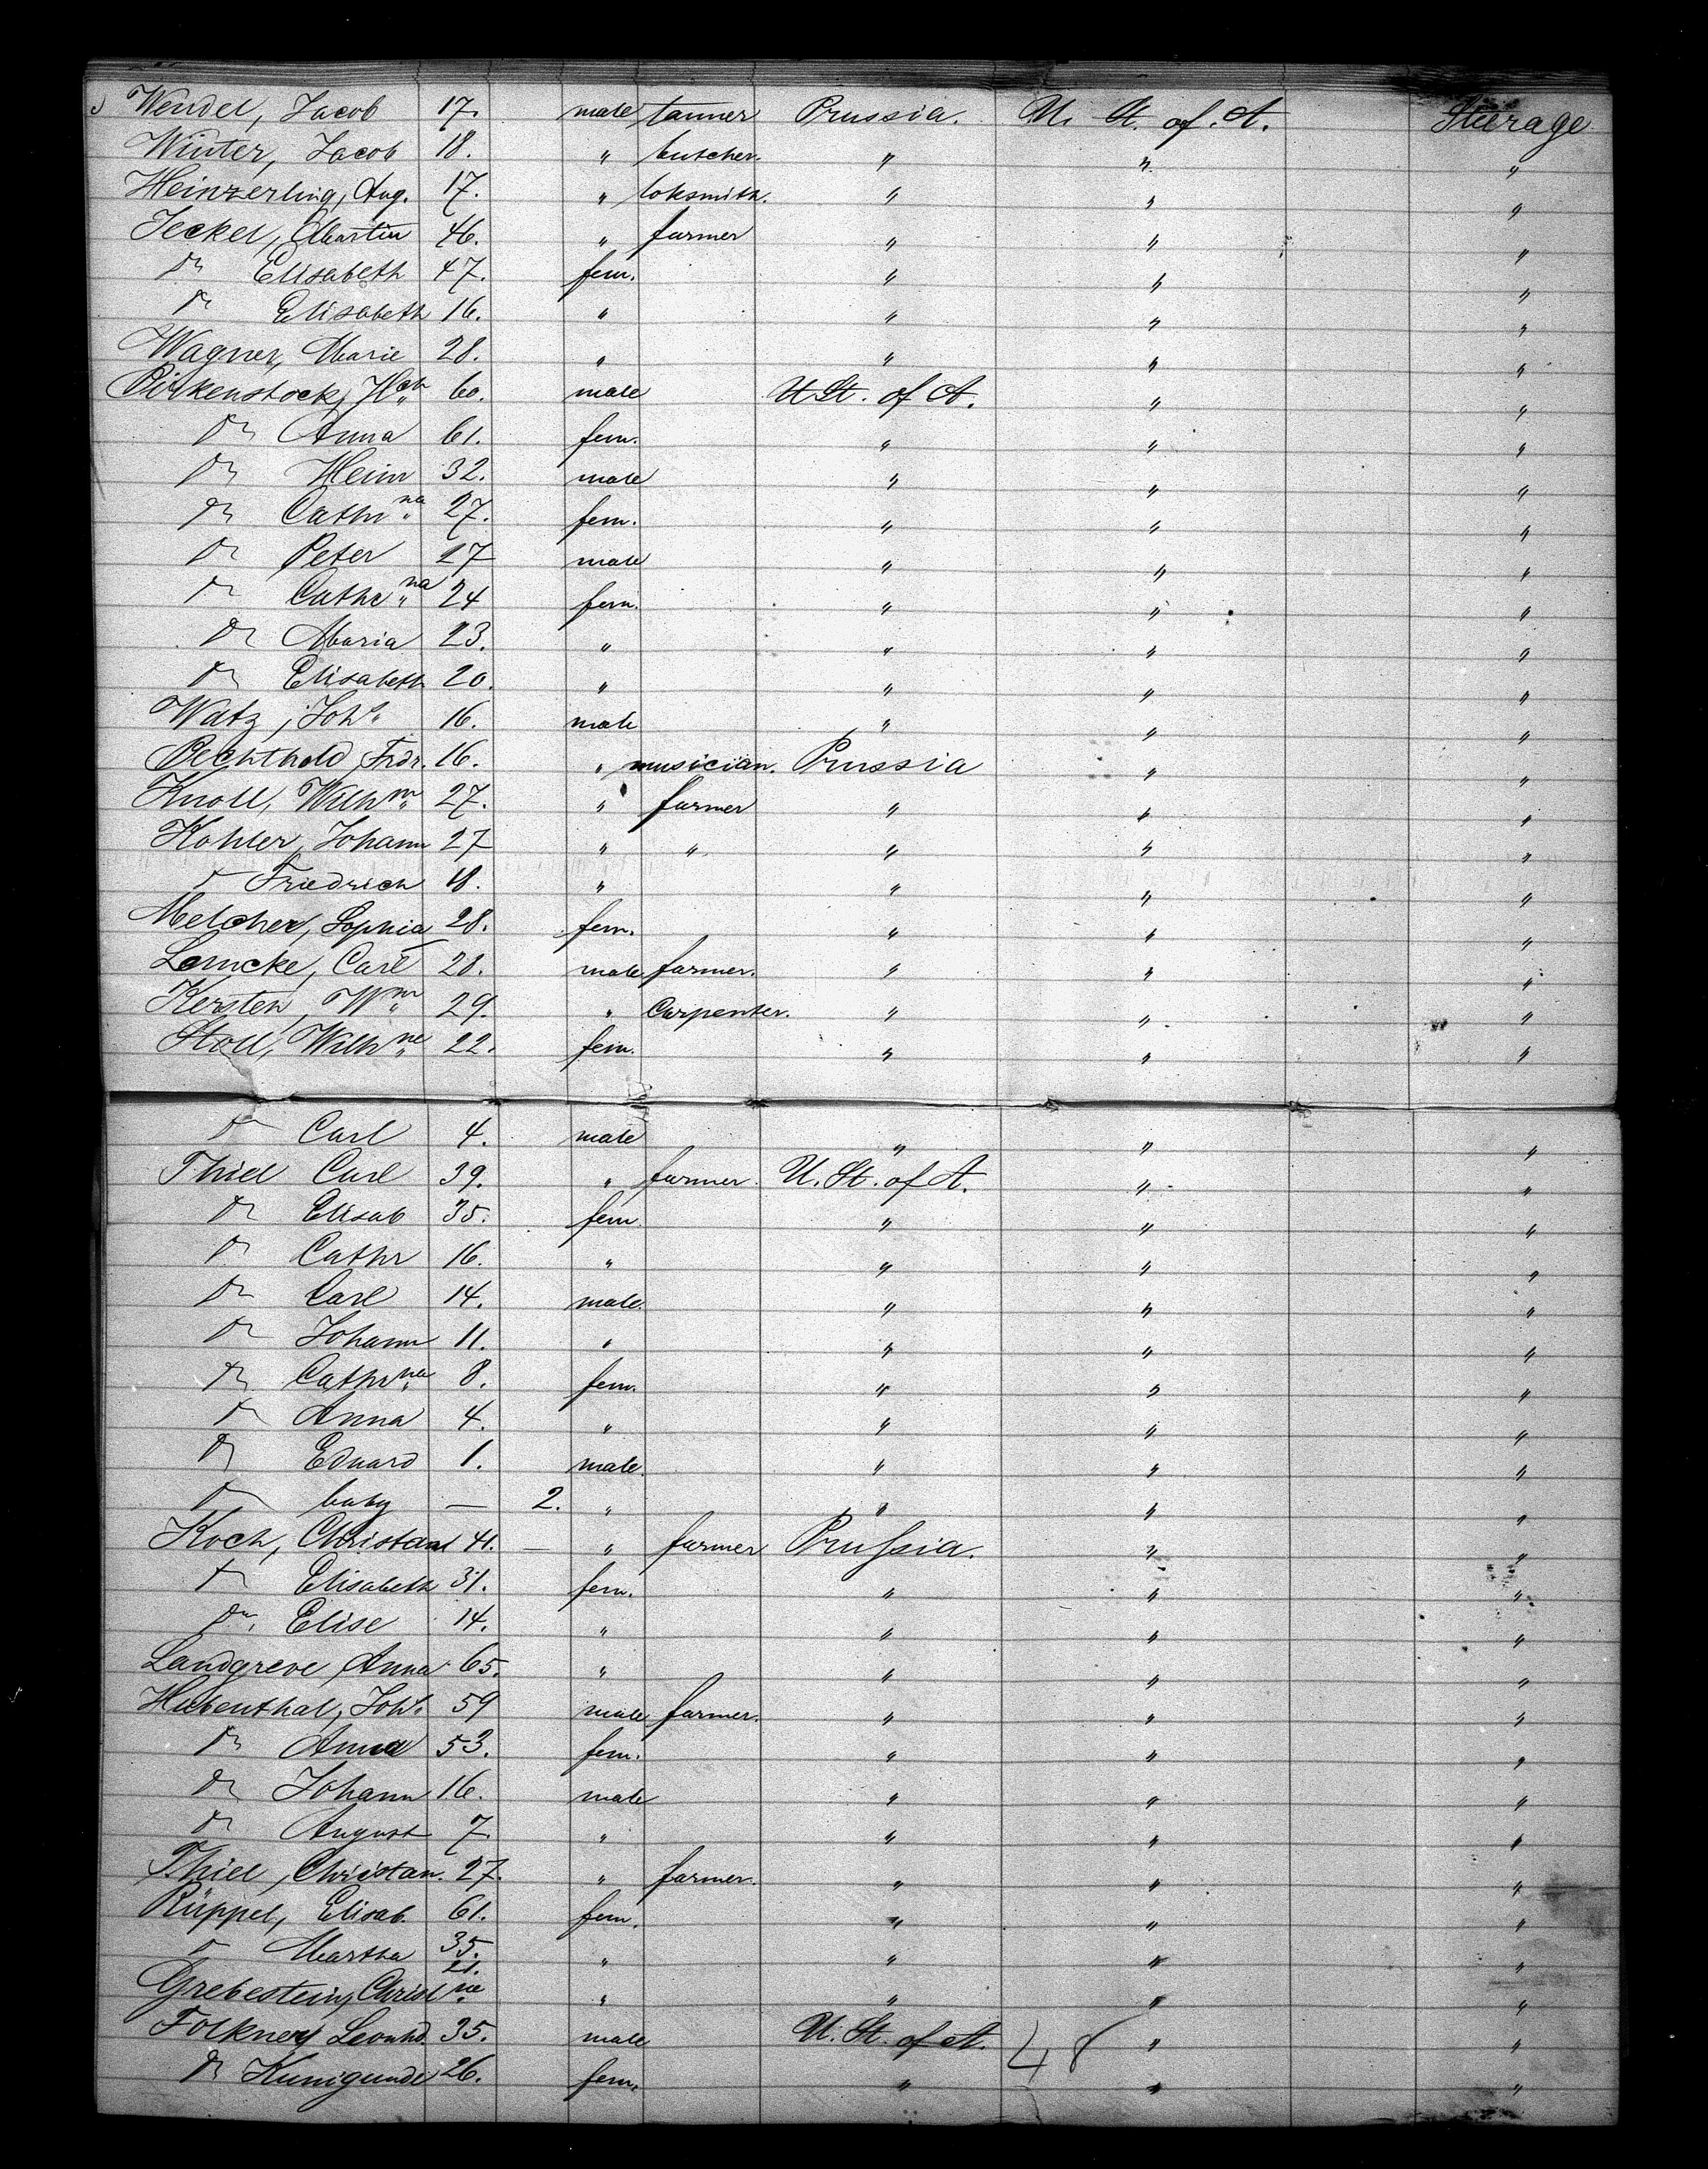 Wendel, Jacob 17. male tanner Prussia. U. St. of. A. Steerage
Winter, Jacob 18. " butcher. " " "
Heinzerling, Aug. 17. " loksmith. " " "
Jeckel, Martin 46. " farmer " " "
do Elisabeth 47. fem. " " "
do Elisabeth 16. " " " "
Wagner, Marie 28. " " " "
Birkenstock, Hch 60. male U St. of A. " "
do Anna 61. fem. " " "
do Heinr 32. male " " "
do Cathr na 27. fem. " " "
do Peter 27 male " " "
do Cathr na 24 fem. " " "
do Maria 23. " " " "
do Elisabeth 20. " " " "
Watz, Johs 16. male " " "
Bechthold Frdr. 16. " musician. Prussia " "
Knoll, Wilh m 27. " farmer " " "
Kohler, Johann 27 " " " " "
do Friedrich 18. " " " "
Melcher, Sophia 28. fem. " " "
Lemcke, Carl 28. male farmer. " " "
Kersten, Wm 29. " Carpenter. " " "
Stoll, Wilh ne 22. fem. " " "
do Carl 4. male " " "
Thiel Carl 39. " farmer. U. St. of A. " "
do Elisab 35. fem. " " "
do Cathr 16. " " " "
do Carl 14. male. " " "
do Johann 11. " " " "
do Cathr na 8. fem. " " "
do Anna 4. " " " "
do Eduard 1. male. " " "
do baby — 2. " " " "
Koch, Christian 41. — " farmer Prussia. " "
do Elisabeth 31. fem. " " "
do Elise 14. " " " "
Landgreve, Anna 65. " " " "
Hubenthal, Johs 59 male farmer. " " "
do Anna 53. fem. " " "
do Johann 16. male " " "
do August 7. " " " "
Thiel, Christan. 27. " farmer. " " "
Rüppel, Elisab. 61. fem. " " "
do Martha 35. " " " "
Grebestein, Christ ne 21. " " " "
Folkner, Leonhd. 35. male U. St. of A. 48 " "
do Kunigunde 26. fem. " " "